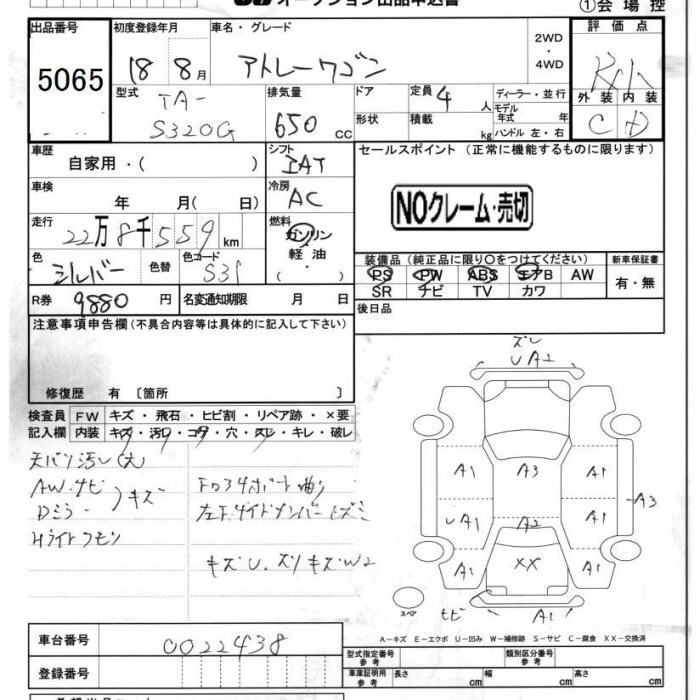 オークション出品申込書
①会場控
出品番号 初度登録年月 車名・グレード 2WD・4WD 評価点
5065 18 8月 アトレーワゴン
型式 TA-S320G 排気量 650 cc ドア 形状 定員 4人 積載 kg ディーラー・並行 モデル年式 年 ハンドル 左・右 外装 内装
C D
車歴 自家用・( ) シフト IAT セールスポイント (正常に機能するものに限ります)
車検 年 月( 日) 冷房 AC
NOクレーム・売切
走行 22万8千559km 燃料 ガソリン 軽油 ( ・ )
色 シルバー 色替 色コード
装備品 (純正品に限り○をつけてください) 新車保証書
PS PW ABS エアB AW 有・無
SR ナビ TV カワ
R券 9880円 名変通知期限 月 日 後日品
注意事項申告欄(不具合内容等は具体的に記入して下さい)
修復歴 有 〔箇所 〕
検査員 FW キズ・飛石・ヒビ割・リペア跡・×要
記入欄 内装 キズ・汚レ・コゲ・穴・スレ・キレ・破レ
天バリ汚レ(大)
AW.サビ
Dミラーキズ
Hライトクモリ
左F.サイドメンバー
キズU.ズリキズW2
ズレ
UA2
A1 A3 A1
A3
UA1 A2 A1
A1 XX A1
スペア
ヒビ A1
A-キズ E-エクボ U-凹み W-補修跡 S-サビ C-腐食 XX-交換済
車台番号 0022438
型式指定番号 参考 類別区分番号 参考
登録番号 車庫証明用 参考 長さ cm 幅 cm 高さ cm